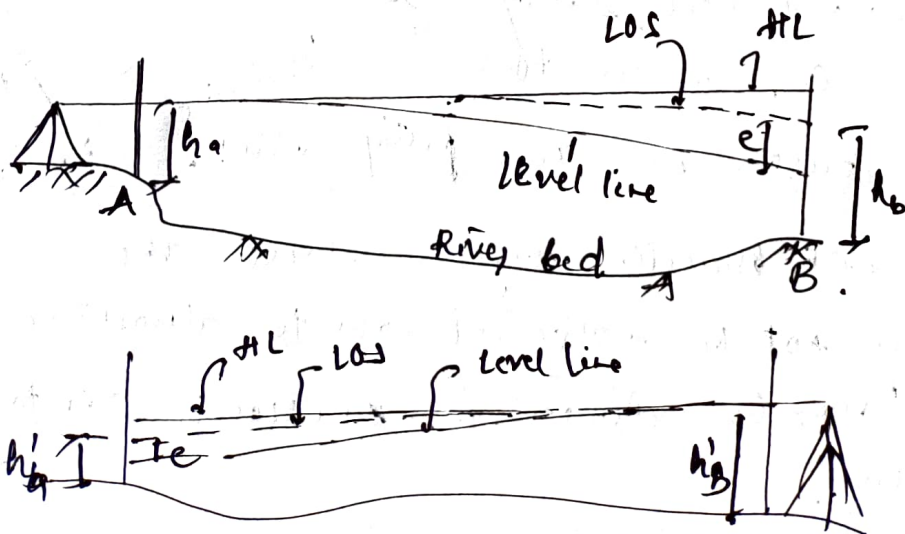 LOS HL
ha
e
Level line
hb
A
River bed
B
HL LOS Level line
h'a
e
h'B